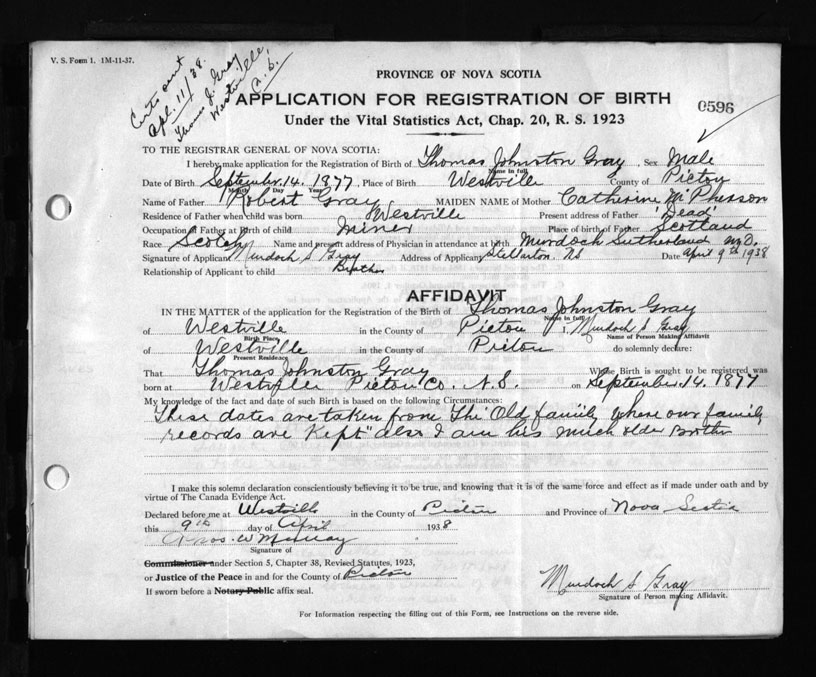 V. S. Form 1. 1M-11-37.
Certs sent
Apl. 11/38.
Thomas J. Gray
Westville,
PROVINCE OF NOVA SCOTIA
APPLICATION FOR REGISTRATION OF BIRTH
0596
Under the Vital Statistics Act, Chap. 20, R. S. 1923
TO THE REGISTRAR GENERAL OF NOVA SCOTIA:
I hereby make application for the Registration of Birth of Thomas Johnston Gray, Sex Male
Name in full
Date of Birth September. 14. 1877, Place of Birth Westville County of Pictou
Month Day Year
Name of Father Robert Gray MAIDEN NAME of Mother Catherine McPherson
Residence of Father when child was born Westville Present address of Father 'Dead'
Occupation of Father at Birth of child miner Place of birth of Father Scotland
Race Scotch Name and present address of Physician in attendance at birth Murdoch Sutherland M.D.
Signature of Applicant Murdoch S Gray Address of Applicant Stellarton. NS Date April 9th 1938
Relationship of Applicant to child Brother
AFFIDAVIT
IN THE MATTER of the application for the Registration of the Birth of Thomas Johnston Gray
Name in full
of Westville in the County of Pictou I, Murdoch S Gray
Birth Place Name of Person Making Affidavit
of Westville in the County of Pictou do solemnly declare:
Present Residence
That Thomas Johnston Gray Whose Birth is sought to be registered was
born at Westville Pictou Co. N.S. on September. 14. 1877
My knowledge of the fact and date of such Birth is based on the following Circumstances:
These dates are taken from The "Old family where our family
records are Kept" also I am his much older Brother
I make this solemn declaration conscientiously believing it to be true, and knowing that it is of the same force and effect as if made under oath and by
virtue of The Canada Evidence Act.
Declared before me at Westville in the County of Pictou and Province of Nova Scotia
this 9th day of April 1938
Signature of
Commissioner under Section 5, Chapter 38, Revised Statutes, 1923,
or Justice of the Peace in and for the County of Pictou
Murdoch S Gray
If sworn before a Notary Public affix seal.
Signature of Person making Affidavit.
For Information respecting the filling out of this Form, see Instructions on the reverse side.